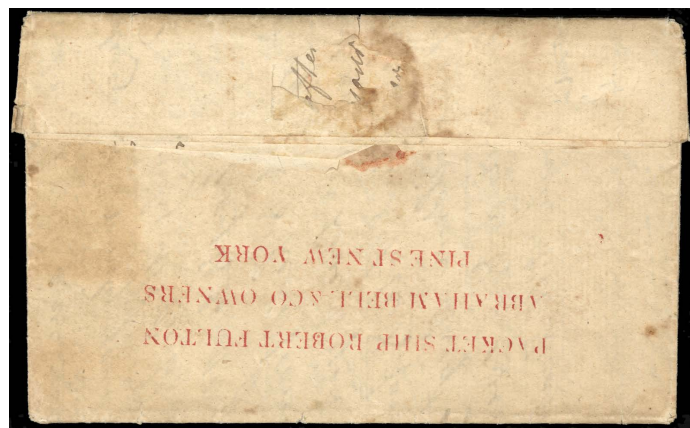 PACKET SHIP ROBERT FULTON
ABRAHAM BELL & CO OWNERS
PINE ST. NEW YORK